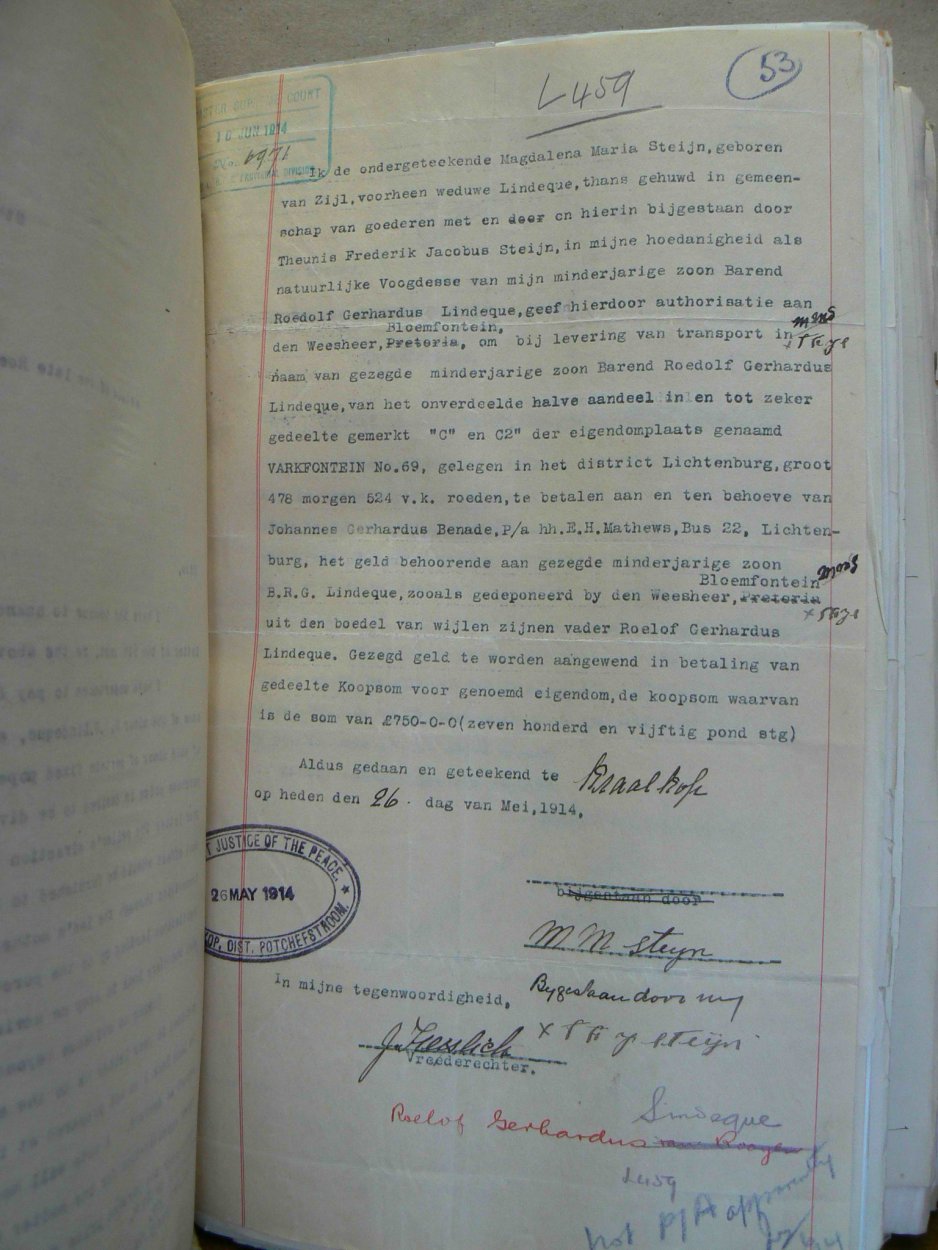 53
L459
MASTER SUPREME COURT
16 JUN 1914
No. 6971
Ik de ondergeteekende Magdalena Maria Steijn, geboren
van Zijl, voorheen weduwe Lindeque, thans gehuwd in gemeen-
schap van goederen met en deer en hierin bijgestaan door
Theunis Frederik Jacobus Steijn, in mijne hoedanigheid als
natuurlijke Voogdesse van mijn minderjarige zoon Barend
Roedolf Gerhardus Lindeque, geef hierdoor authorisatie aan
Bloemfontein,
den Weesheer, Pretoria, om bij levering van transport in
naam van gezegde minderjarige zoon Barend Roedolf Gerhardus
Lindeque, van het onverdeelde halve aandeel in en tot zeker
gedeelte gemerkt "C" en C2" der eigendomplaats genaamd
VARKFONTEIN No.69, gelegen in het district Lichtenburg, groot
478 morgen 524 v.k. roeden, te betalen aan en ten behoeve van
Johannes Gerhardus Benade, P/a hh.E.H.Mathews, Bus 22, Lichten-
burg, het geld behoorende aan gezegde minderjarige zoon
Bloemfontein
B.R.G. Lindeque, zooals gedeponeerd by den Weesheer, Pretoria
uit den boedel van wijlen zijnen vader Roelof Gerhardus
Lindeque. Gezegd geld te worden aangewend in betaling van
gedeelte Koopsom voor genoemd eigendom, de koopsom waarvan
is de som van £750-0-0(zeven honderd en vijftig pond stg)
Aldus gedaan en geteekend te Kraalkop
op heden den 26. dag van Mei, 1914.
JUSTICE OF THE PEACE.
26 MAY 1914
KOP, DIST. POTCHEFSTROOM.
bijgestaan door
M M Steyn
In mijne tegenwoordigheid,
Bygestaan door my
x T F J Steijn
Vrederechter.
Lindeque
Roelof Gerhardus van Rooyen
L459
not P/A apparently